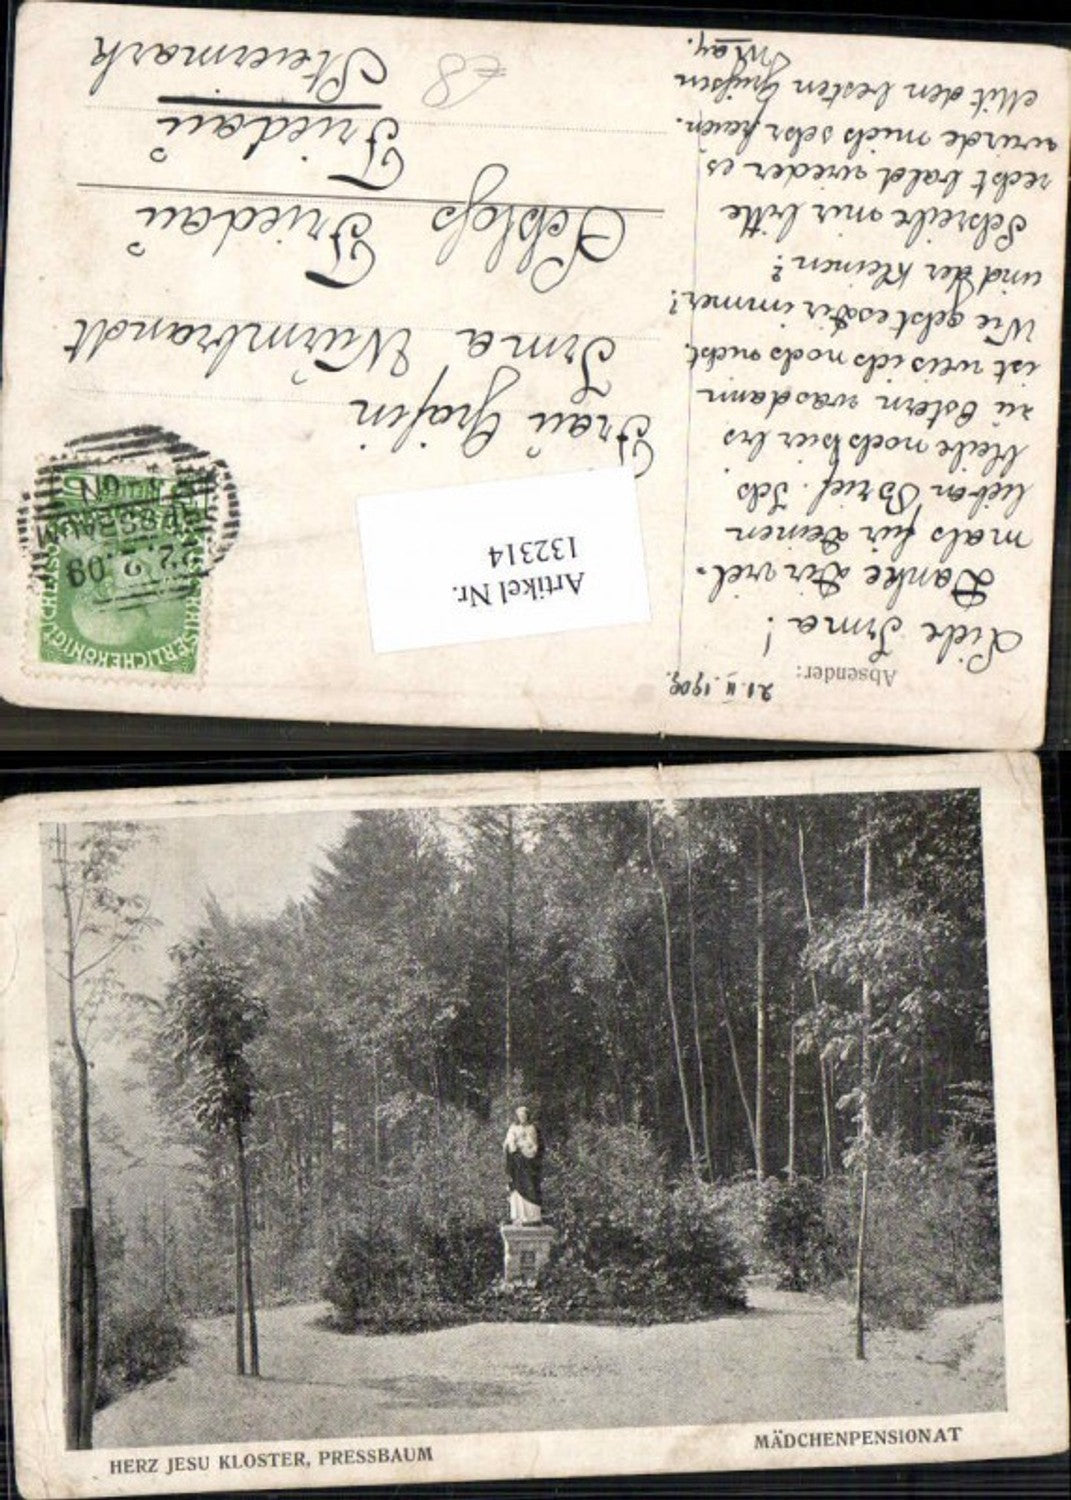 Absender: 21.II.1909.
Liebe Irma!
Danke Dir viel-
mals für Deinen
lieben Brief. Ich
bleibe noch hier bis
zu Ostern was dann
ist weis ich noch nicht.
Wie geht es Dir immer?
und der Kleinen?
Schreibe mir bitte
recht bald wieder es
würde mich sehr freuen.
Mit den besten Grüßen
May.
Artikel Nr.
132314
22. 2. 09
PRESSBAUM
Frau Gräfin
Irma Wurmbrandt
Schloß Friedau
Friedau
Steiermark
€8
HERZ JESU KLOSTER, PRESSBAUM
MÄDCHENPENSIONAT